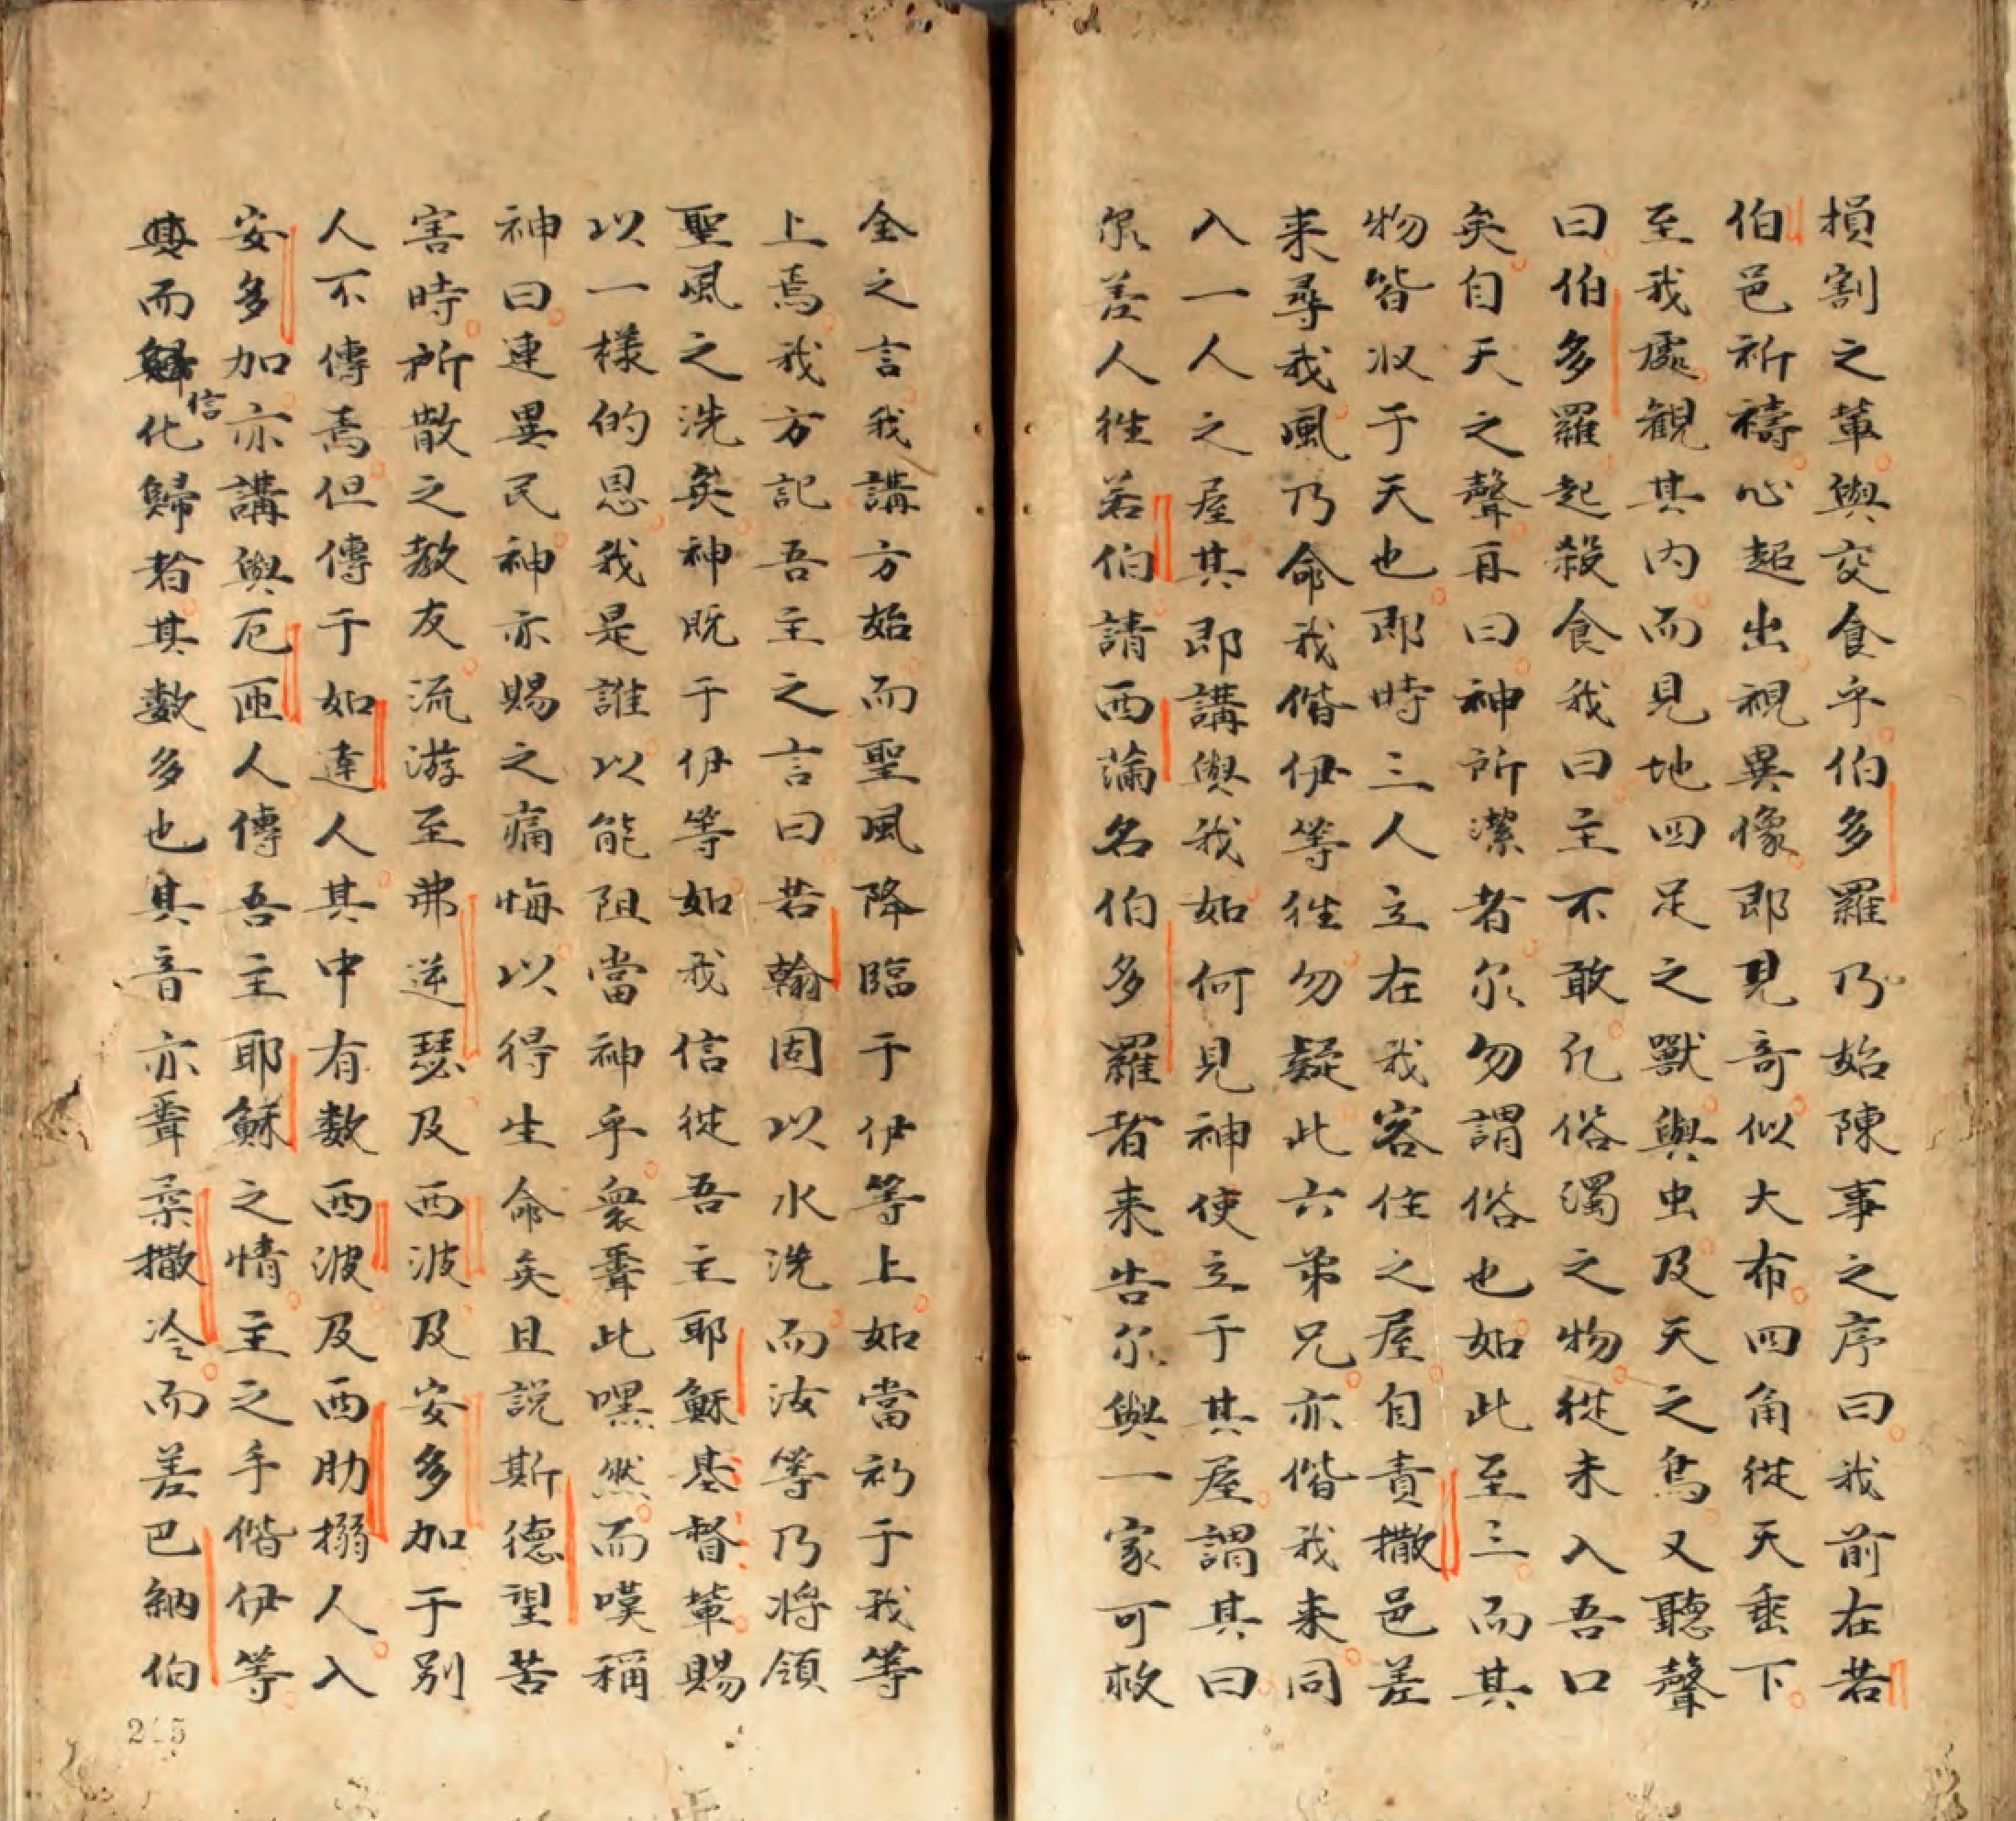 損割之軰與交食乎伯多羅乃始陳事之序曰我前在若
伯邑祈禱心超出視異像即見竒似大布四角從天垂下
至我處觀其內而見地四足之獸與虫及天之鳥又聽聲
曰伯多羅起殺食我曰主不敢凢俗濁之物從未入吾口
矣自天之聲再曰神所潔者尔勿謂俗也如此至三而其
物皆収于天也即時三人立在我客住之屋自責撒邑差
来尋我風乃命我偕伊等徃勿疑此六弟兄亦偕我来同
入一人之屋其即講與我如何見神使立于其屋謂其曰
尔差人徃若伯請西蒲名伯多羅者来告尔與一家可救
全之言我講方始而聖風降臨于伊等上如當初于我等
上焉我方記吾主之言曰若翰固以水洗而汝等乃將領
聖風之洗矣神既于伊等如我信從吾主耶穌基督軰賜
以一樣的恩我是誰以能阻當神乎衆聽此嘿然而嘆稱
神曰連異民神亦賜之痛悔以得生命矣且說斯德望苦
害時所散之教友流游至弗逆瑟及西波及安多加于别
人不傳焉但傳于如達人其中有数西波及西肋搦人入
安多加亦講與厄匝人傳吾主耶穌之情主之手偕伊等
其而歸信化歸者其數多也其音亦聽桑撒冷而差巴納伯
215